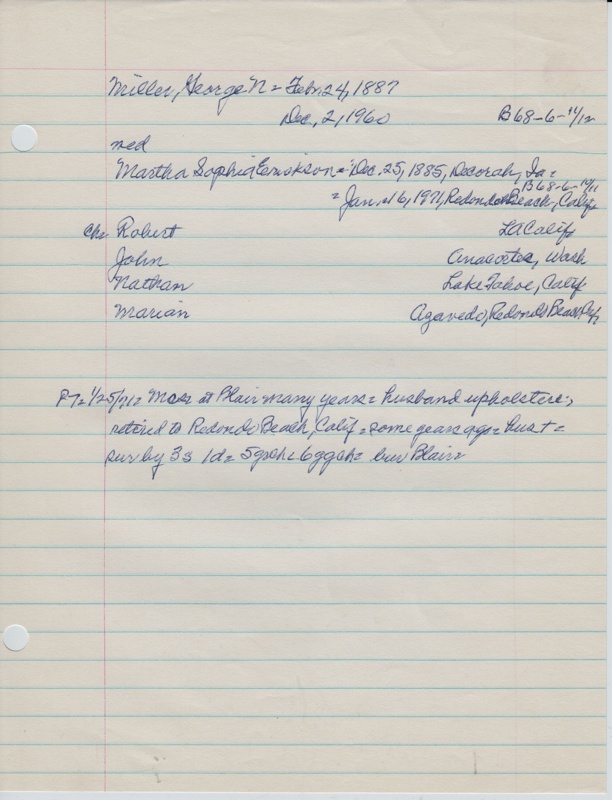 Miller, George N = Feb. 24, 1887
Dec, 2, 1960 B68-6-11/12
med
Martha Sophia Erickson = Dec. 25, 1885, Decorah, Ia =
B68-6-10/11
= Jan. 16, 1971, Redondo Beach, Calif
Ch= Robert LA Calif
John Anacortes, Wash
Nathan Lake Tahoe, Calif
Marian Agavedo, Redondo Beach, Calif
PT= 1/25/71= at Blair many years= husband upholsterer,
retired to Redondo Beach, Calif= some years ago= hus +=
sur by 3s 1d= 5gch= 6ggch= bur Blair=